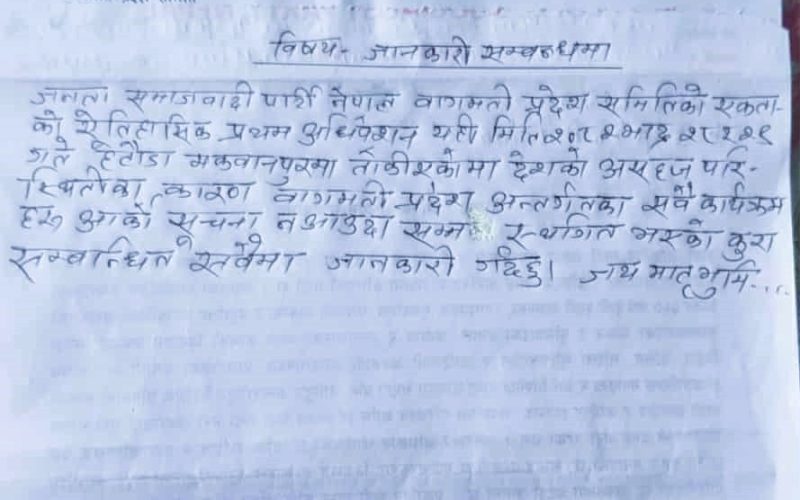 विषय:- जानकारी सम्बन्धमा
जनता समाजवादी पार्टी नेपाल बागमती प्रदेश समितिको एकता-
को ऐतिहासिक प्रथम अधिवेशन यही मिति २०८२ भाद्र २८ र २९
गते हेतौडा मकवानपुरमा तोकीएकोमा देशको असहज परि-
स्थितीका कारण बागमती प्रदेश अन्तर्गतका सबै कार्यक्रम
हरु आर्को सूचना नआउदा सम्म स्थगित भएको कुरा
सम्बान्धित सबैमा जानकारी गर्दछु। जय मातृभुमि....